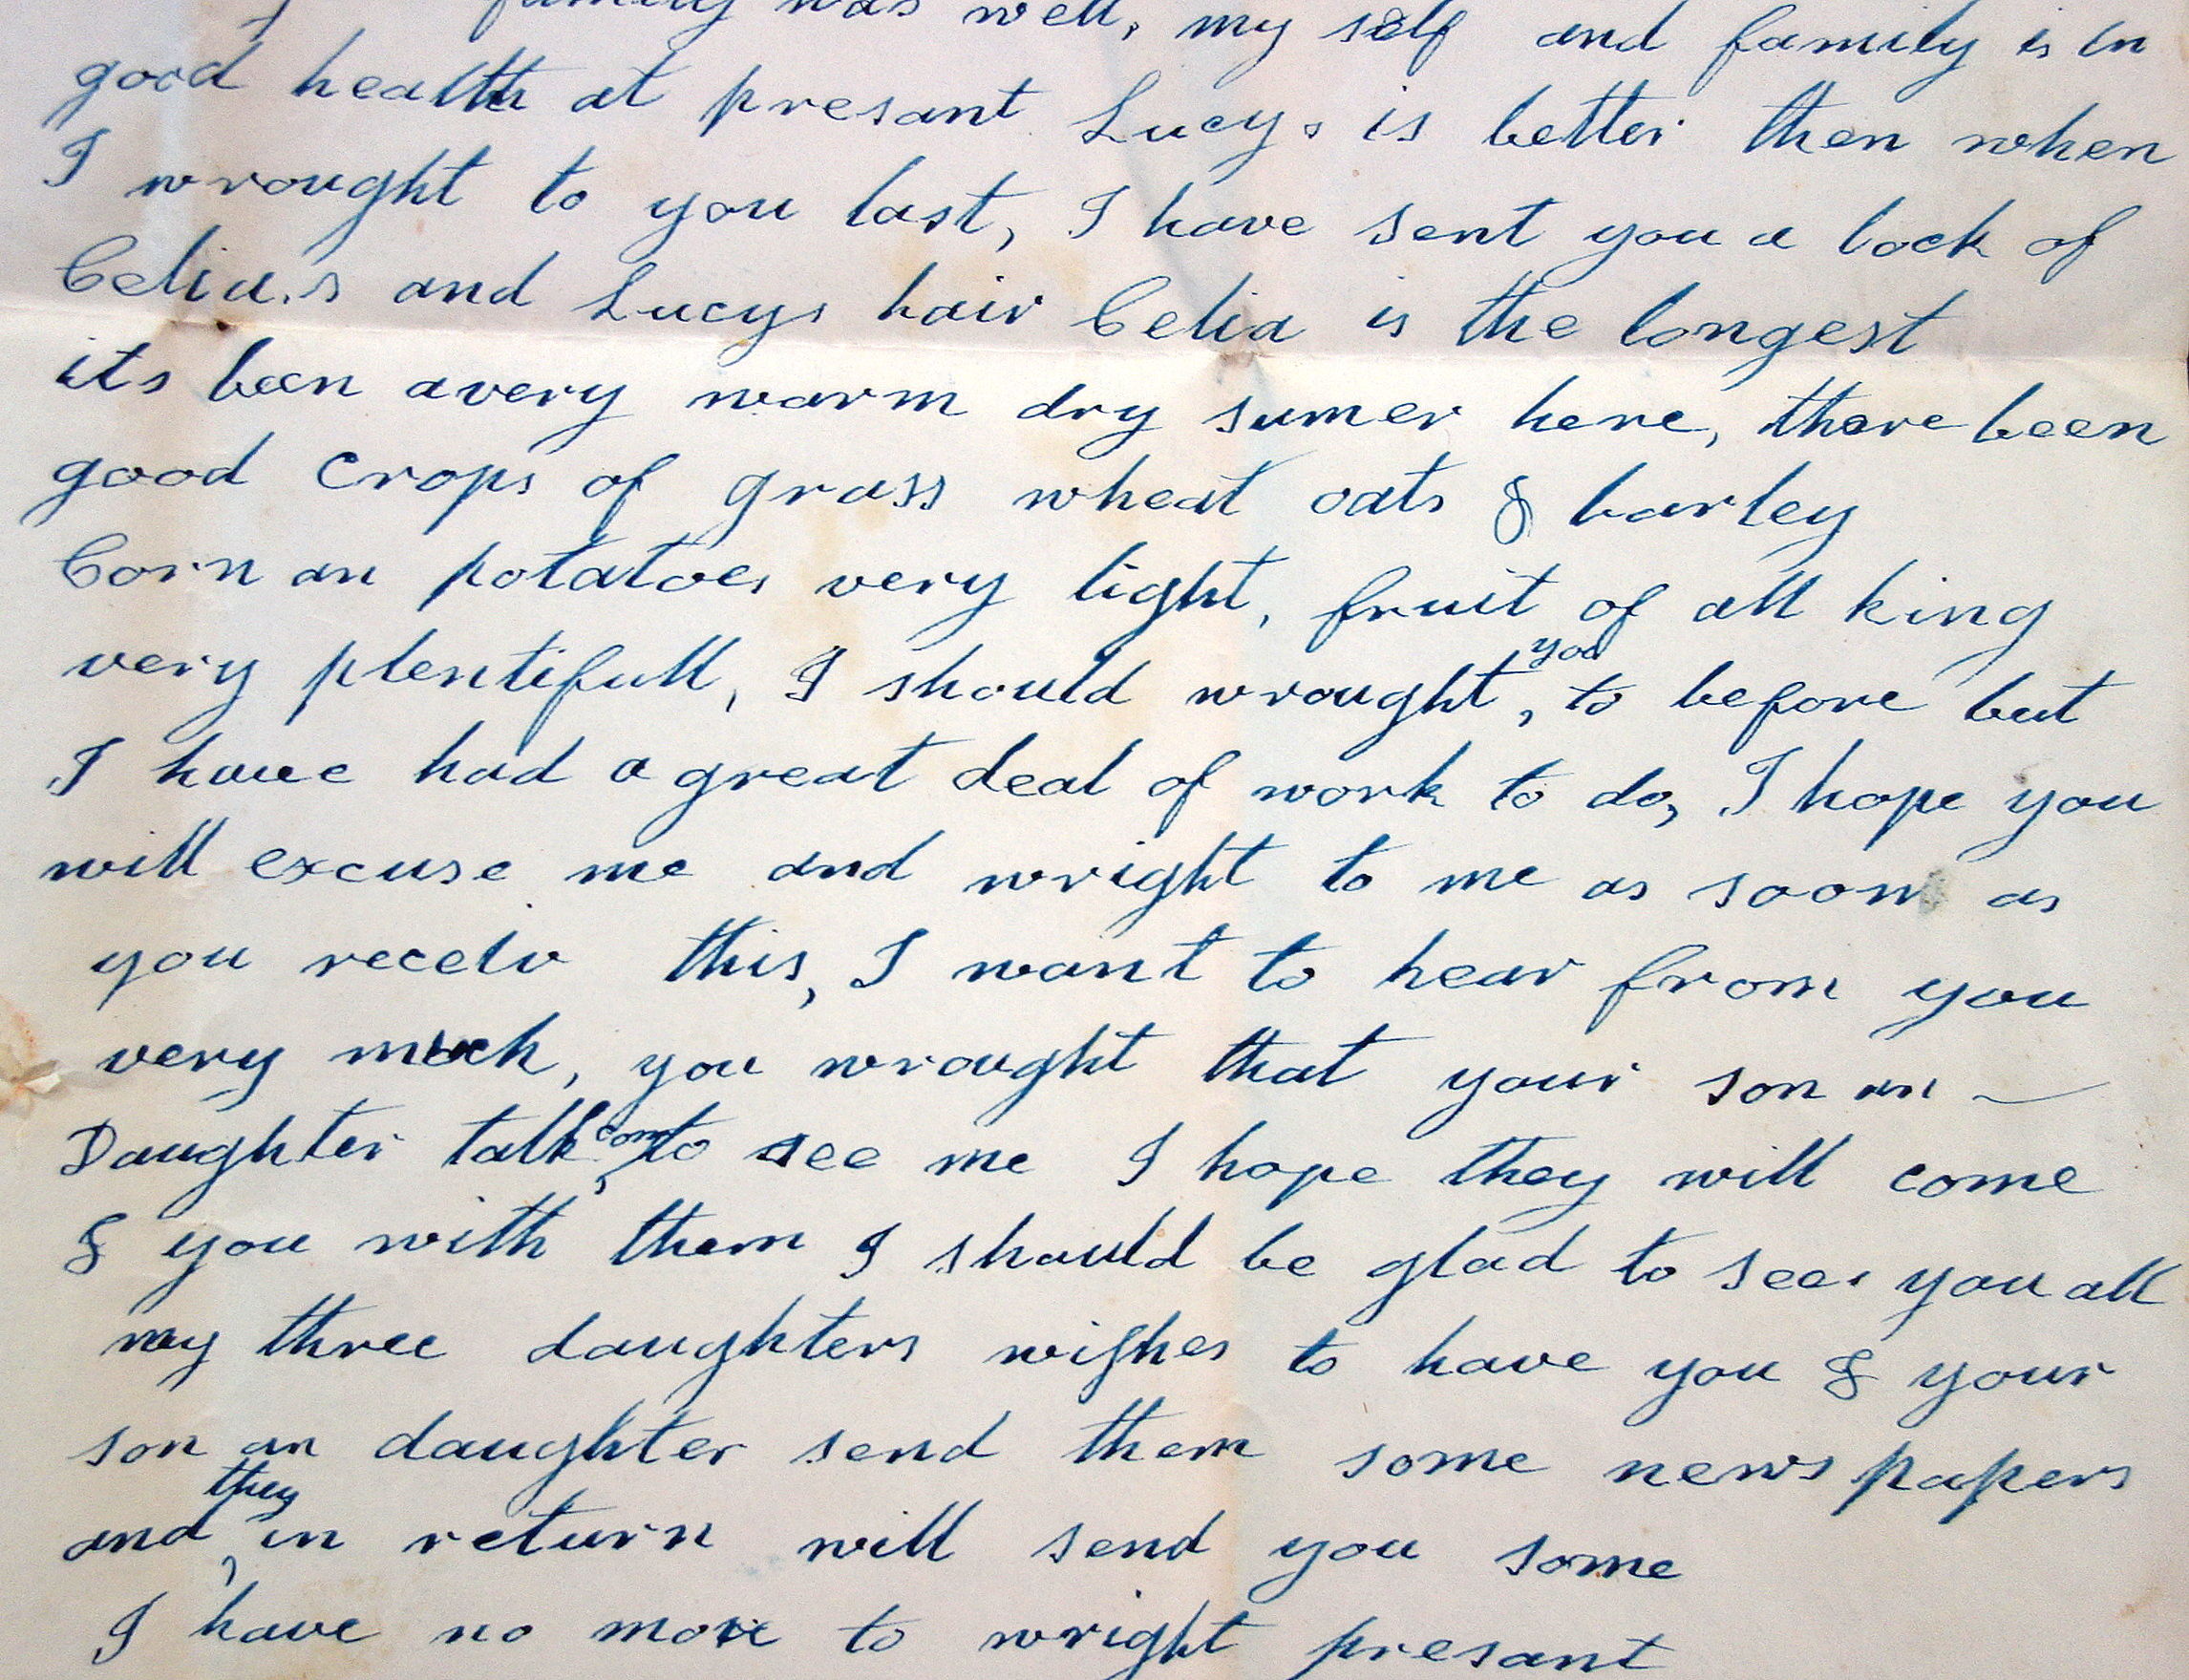 family was well, my self and family is in
good health at presant Lucy. is better then when
I wrought to you last, I have sent you a lock of
Celia.s and Lucys hair Celia is the longest
its been avery warm dry sumer here, there been
good crops of grass wheat oats & barley
Corn an potatoes very light, fruit of all king
very plentifull, I should wrought, you to before but
I have had a great deal of work to do, I hope you
will excuse me and wright to me as soon as
you receiv this, I want to hear from you
very much, you wrought that your son an —
Daughter talk, come to see me I hope they will come
& you with them I should be glad to see. you all
my three daughters wishes to have you & your
son an daughter send them some news papers
and, they in return will send you some
I have no more to wright presant